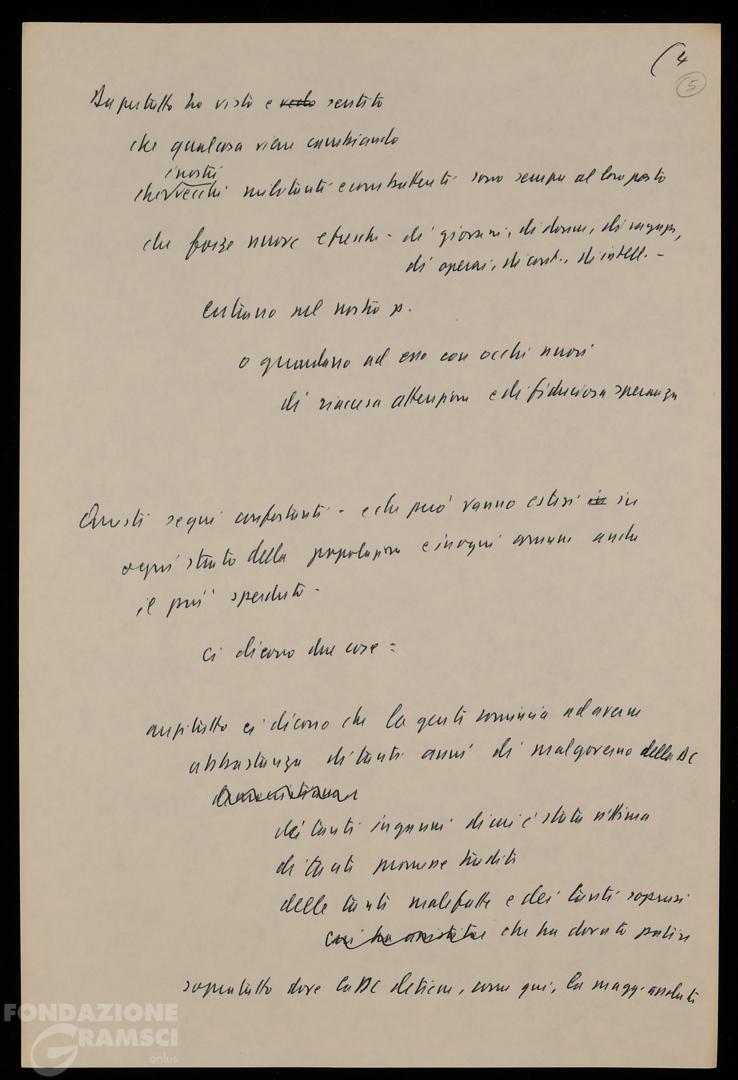 (4
5
Dapertutto ho visto e vedo sentito
che qualcosa viene cambiando
i nostri
che vecchi militanti e combattenti sono sempre al loro posto
che forze nuove e fresche - di giovani, di donne, di ragazze,
di operai, di cont., di intell. -
entrano nel nostro p.
o guardano ad esso con occhi nuovi
di riaccesa attenzione e di fiduciosa speranza
Questi segni confortanti - e che però vanno estesi in in
ogni strato della popolazione e in ogni comune anche
il più sperduto -
ci dicono due cose =
anzitutto ci dicono che la gente comincia ad averne
abbastanza di tanti anni di malgoverno della DC
dei tanti inganni di cui è stata vittima
di tante promesse tradite
delle tante malefatte e dei tanti soprusi
cui ha che ha dovuto patire
soprattutto dove la DC detiene, come qui, la magg. assoluta
FONDAZIONE
GRAMSCI
onlus